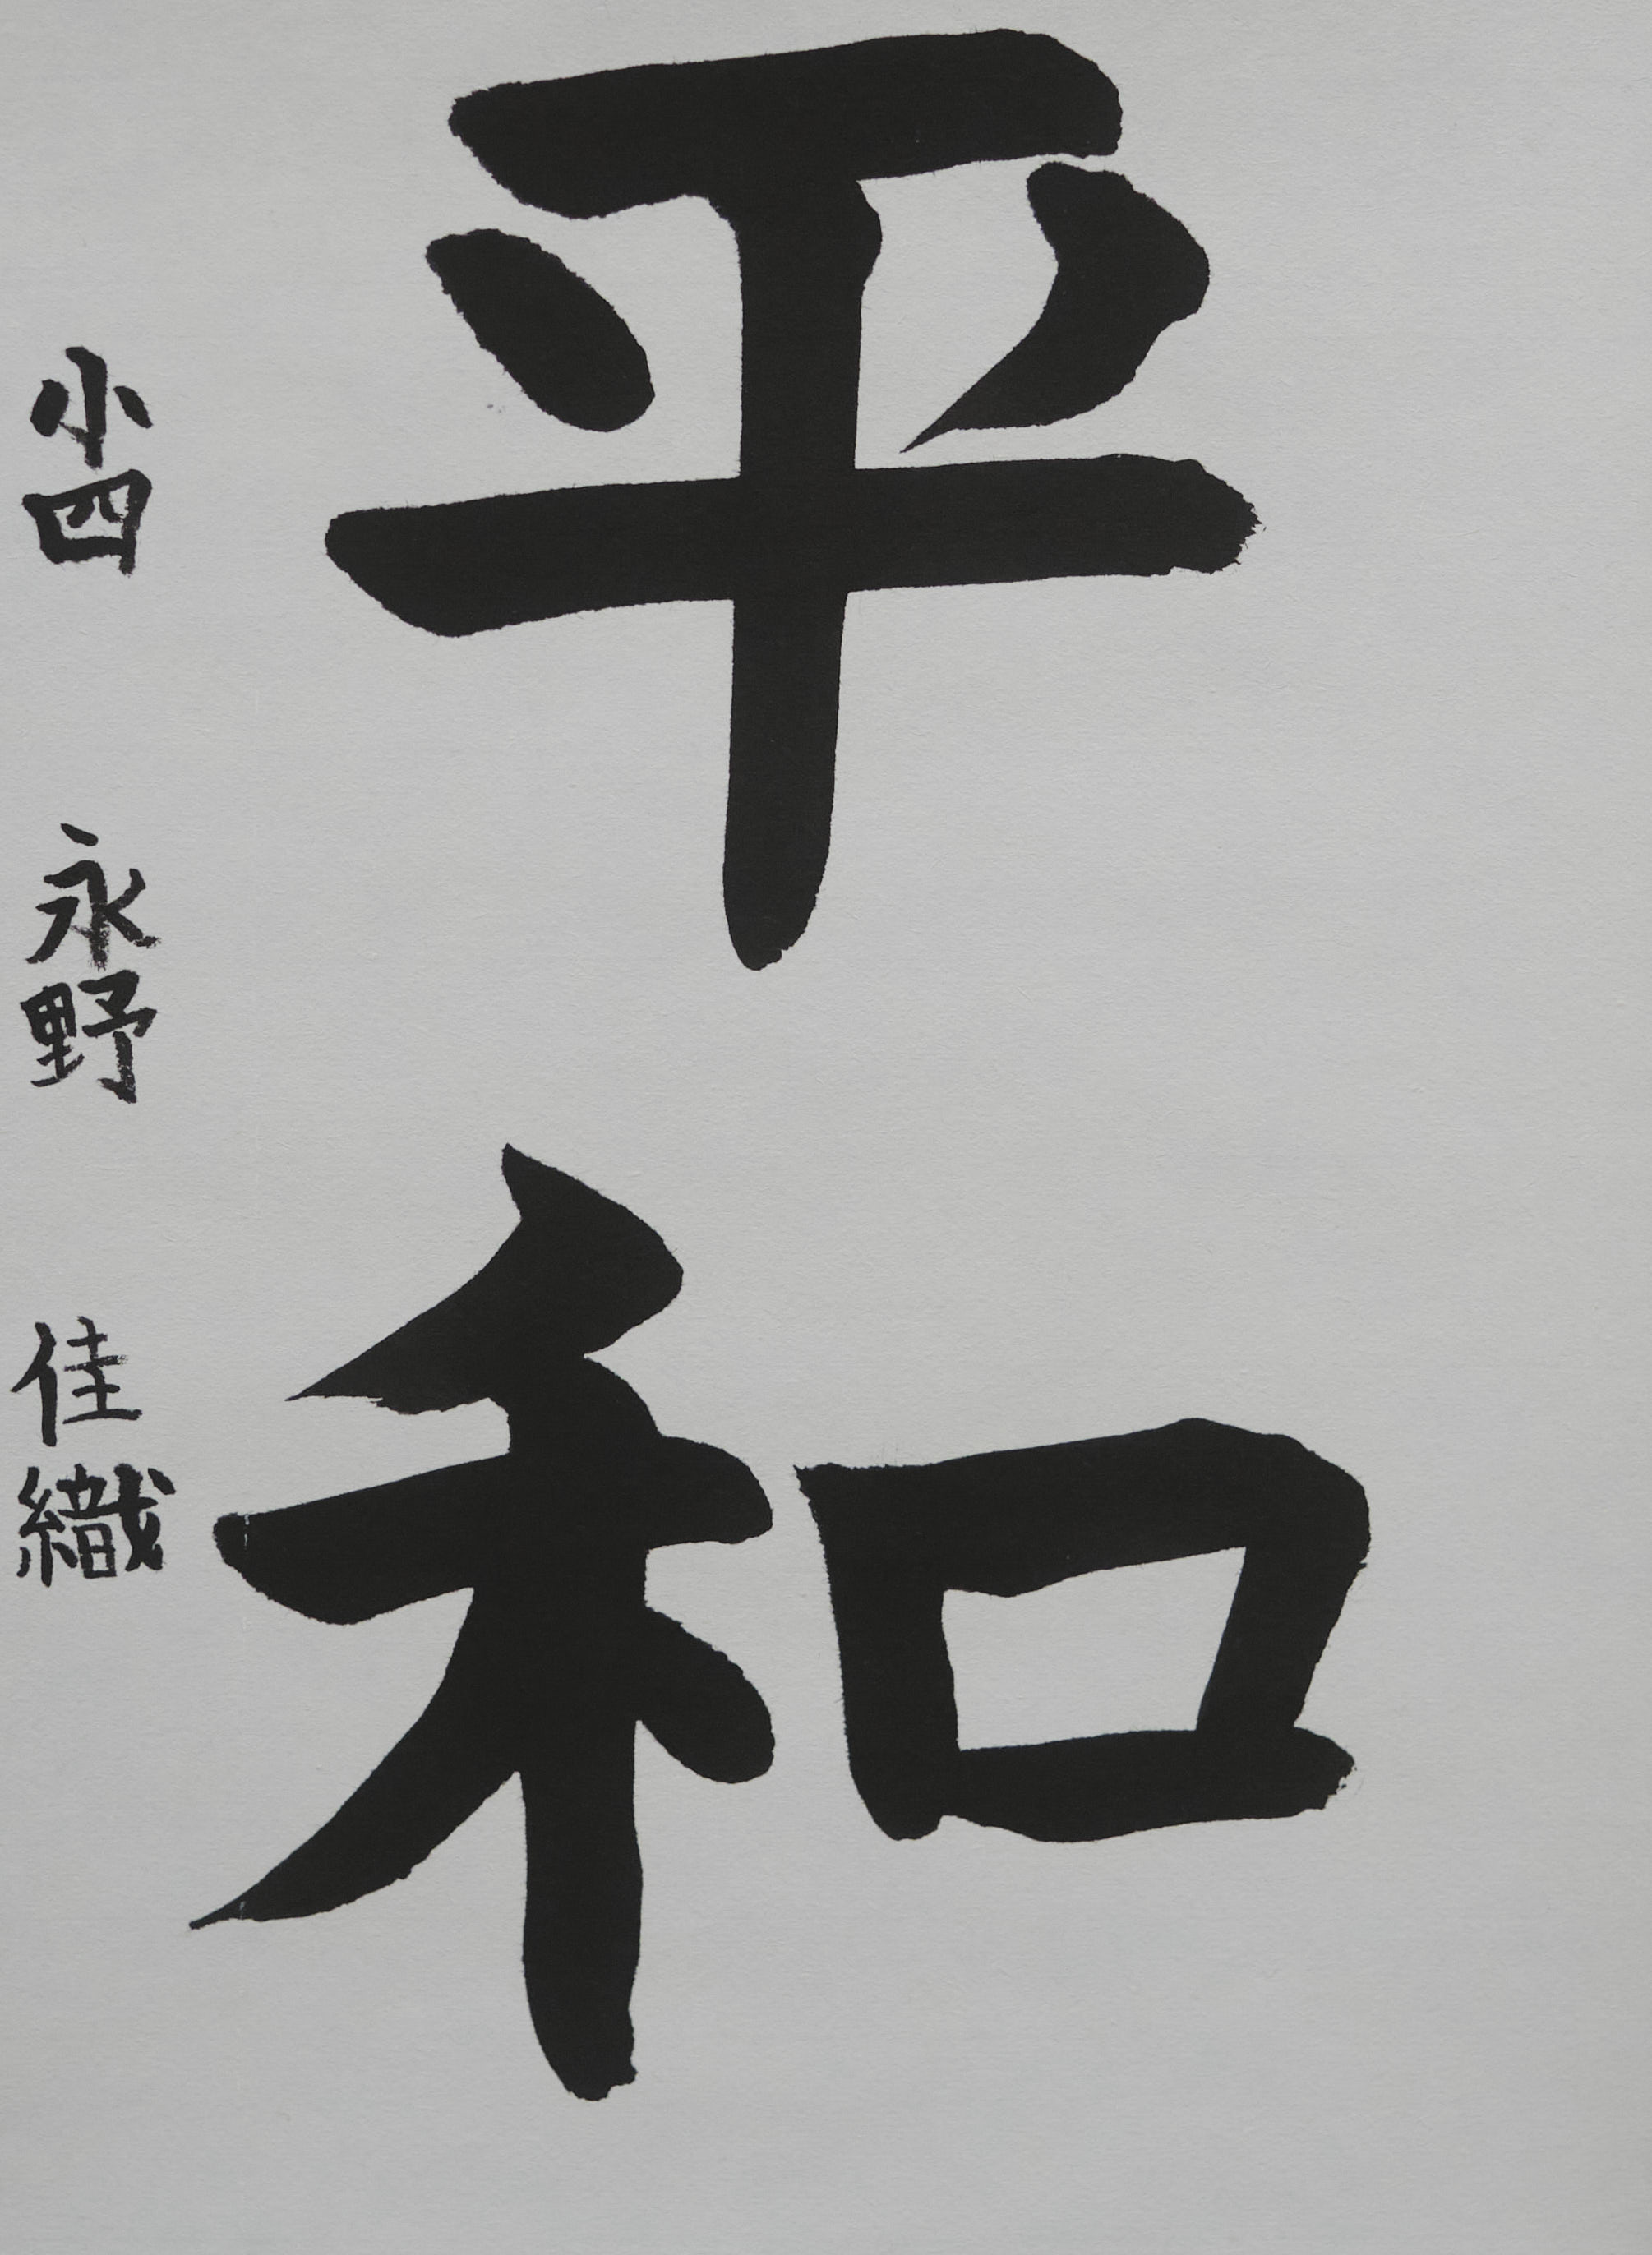 平和
小四 永野 佳織